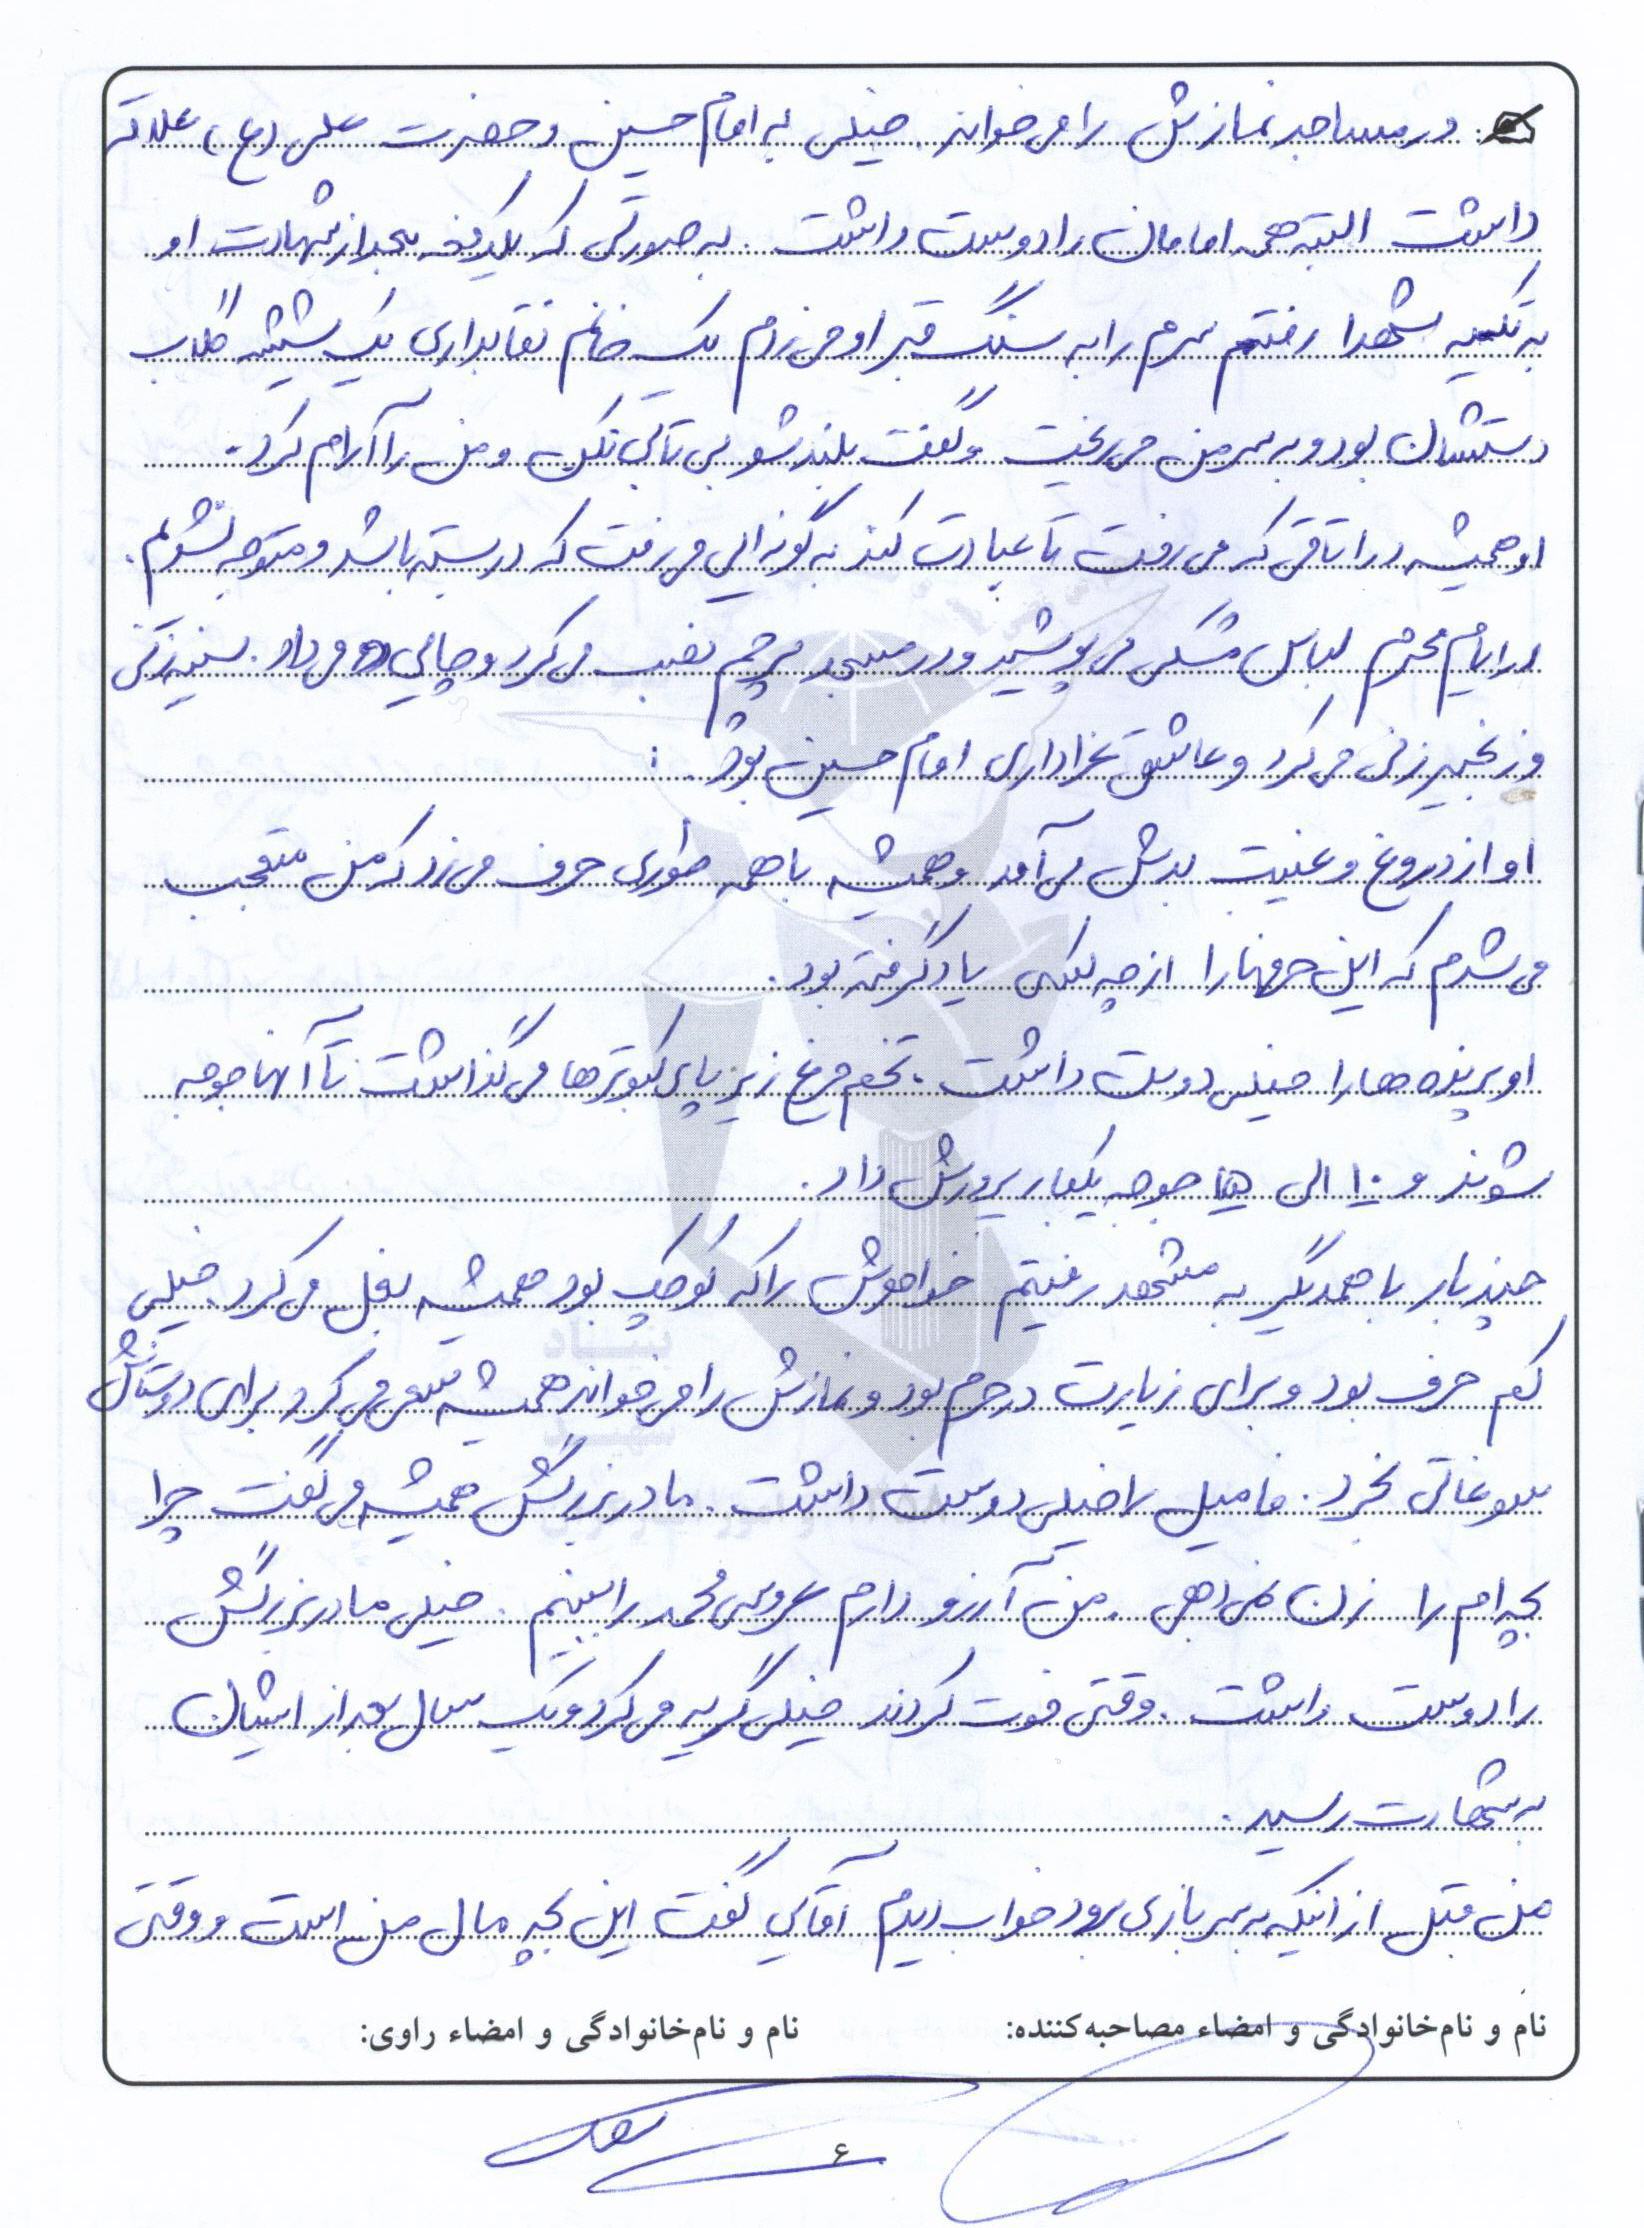 در مساجد نمازش را می خواند. خیلی به امام حسین و حضرت علی (ع) علاقه
داشت البته همه امامان را دوست داشت. به صورتی که یکدفعه بعد از شهادت او
به تکیه شهدا رفتم سرم را به سنگ قبر او می زدم یک خانم نقابداری یک شیشه گلاب
دستشان بود و بر سر من می ریخت و گفت بلند شو بی تابی نکن و من را آرام کرد.
او همیشه در اتاقی که می رفت تا عبادت کند به گونه ایی می رفت که در بسته باشد و متوجه نشویم.
در ایام محرم لباس مشکی می پوشید و در مسجد پرچم نصب می کرد و چایی می داد. سینه زنی
و زنجیر زنی می کرد و عاشق عزاداری امام حسین بود.
او از دروغ و غیبت بدش می آمد و همیشه با همه طوری حرف می زد که من متعجب
می شدم که این حرفها را از چه کسی یاد گرفته بود.
او پرنده ها را خیلی دوست داشت. تخم مرغ زیر پای کبوترها می گذاشت تا آنها جوجه
شوند و ۱۰ الی جوجه یکبار پرورش داد.
چند بار با همدیگر به مشهد رفتیم خواهرش را که کوچک بود همیشه بغل می کرد. خیلی
کم حرف بود و برای زیارت در حرم بود و نمازش را می خواند همیشه سعی می کرد برای دوستانش
سوغاتی بخرد. فامیل را خیلی دوست داشت. مادربزرگش همیشه می گفت چرا
بچه ام را زن نمی دهی. من آرزو دارم عروسی محمد را ببینم. خیلی مادربزرگش
را دوست داشت. وقتی فوت کردند خیلی گریه می کرد و یک سال بعد از ایشان
به شهادت رسید.
من قبل از اینکه به سربازی برود خواب دیدم آقایی گفت این بچه مال من است و وقتی
نام و نام‌خانوادگی و امضاء مصاحبه‌کننده: نام و نام‌خانوادگی و امضاء راوی:
۶